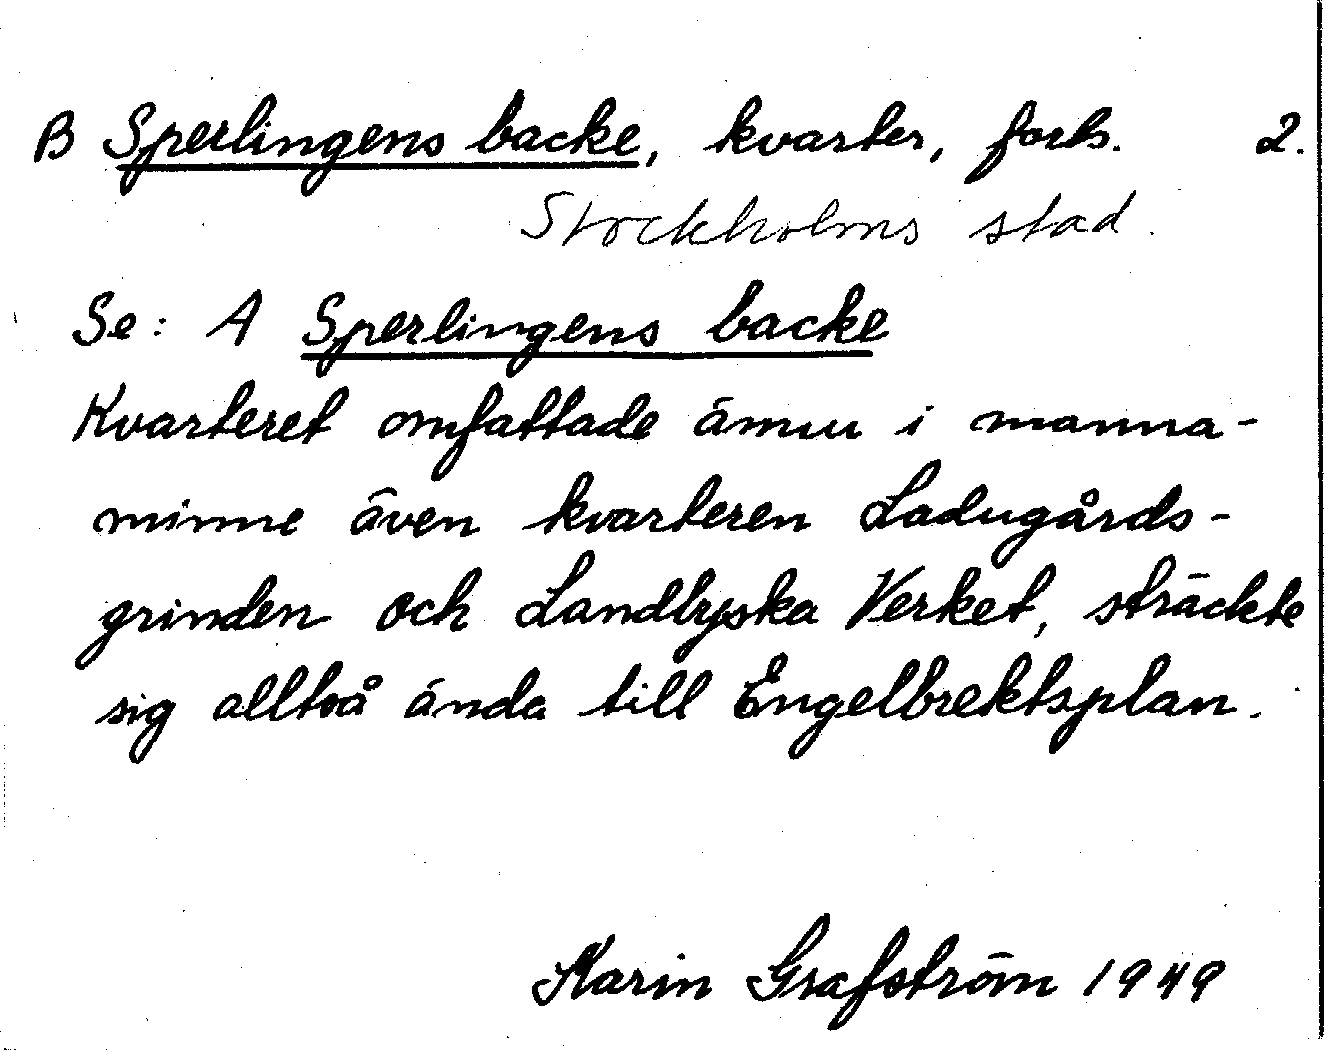 B Sperlingens backe, kvarter, forts. 2.
Stockholms stad.
Se: A Sperlingens backe
Kvarteret omfattade ännu i manna-
minne även kvarteren Ladugårds-
grinden och Landbyska Verket, sträckte
sig alltså ända till Engelbrektsplan.
Karin Grafström 1949